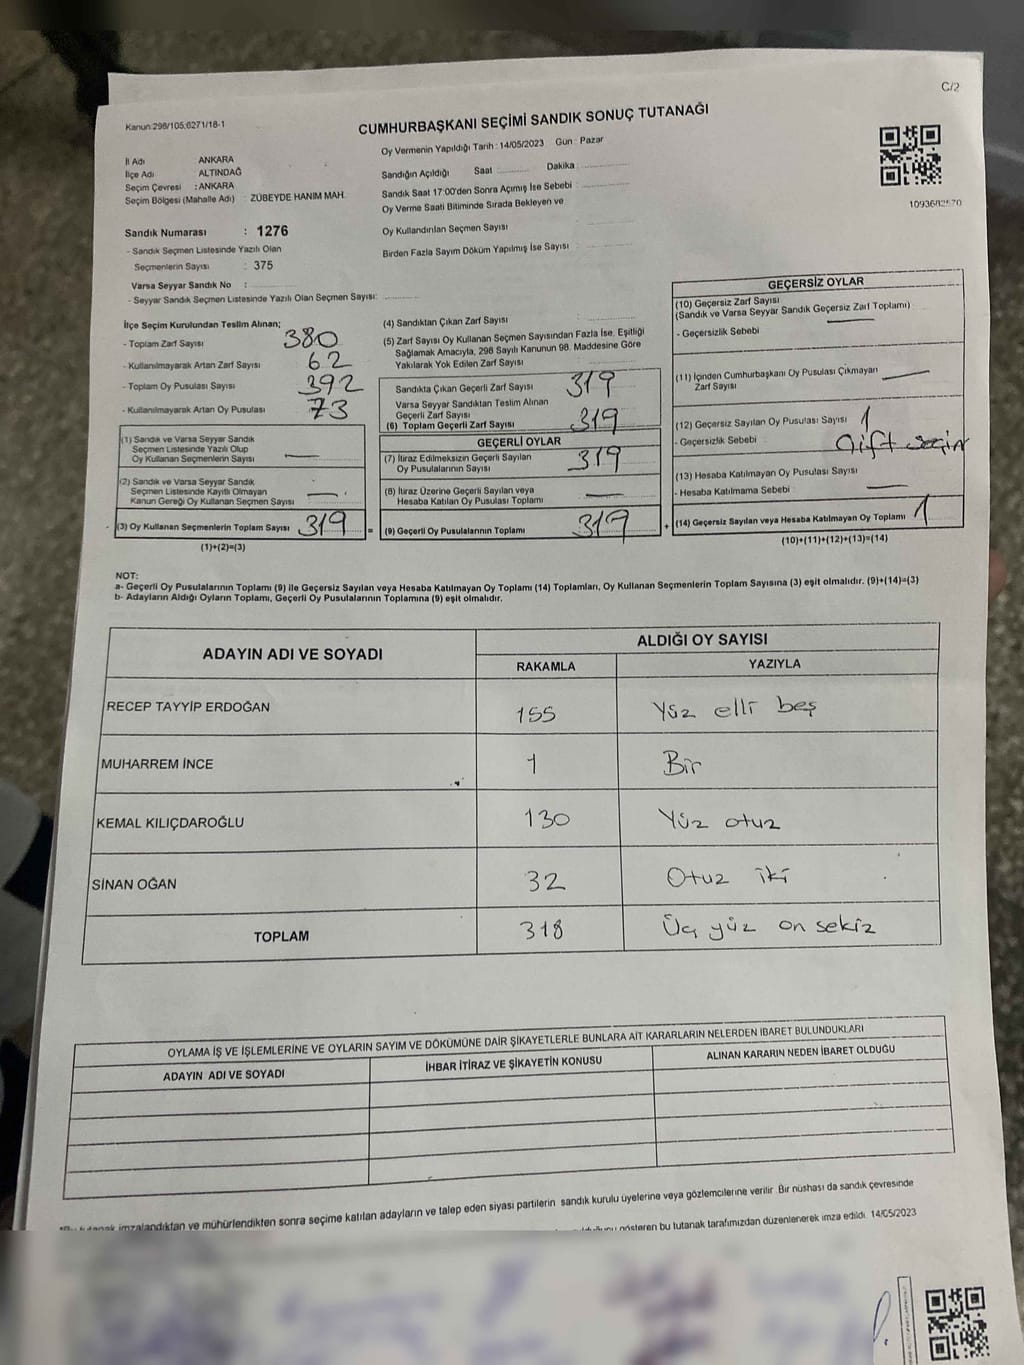 C/2
Kanun:298/105;6271/18-1
CUMHURBAŞKANI SEÇİMİ SANDIK SONUÇ TUTANAĞI
İl Adı ANKARA
İlçe Adı ALTINDAĞ
Seçim Çevresi : ANKARA
Seçim Bölgesi (Mahalle Adı) : ZÜBEYDE HANIM MAH.
Oy Vermenin Yapıldığı Tarih : 14/05/2023 Gün : Pazar
Sandığın Açıldığı Saat Dakika
Sandık Saat 17:00'den Sonra Açımış İse Sebebi
Oy Verme Saati Bitiminde Sırada Bekleyen ve
Oy Kullandırılan Seçmen Sayısı
Birden Fazla Sayım Döküm Yapılmış İse Sayısı
Sandık Numarası : 1276
- Sandık Seçmen Listesinde Yazılı Olan
Seçmenlerin Sayısı : 375
Varsa Seyyar Sandık No :
- Seyyar Sandık Seçmen Listesinde Yazılı Olan Seçmen Sayısı:
İlçe Seçim Kurulundan Teslim Alınan;
- Toplam Zarf Sayısı 380
- Kullanılmayarak Artan Zarf Sayısı 62
- Toplam Oy Pusulası Sayısı 392
- Kullanılmayarak Artan Oy Pusulası 73
(1) Sandık ve Varsa Seyyar Sandık
Seçmen Listesinde Yazılı Olup
Oy Kullanan Seçmenlerin Sayısı
(2) Sandık ve Varsa Seyyar Sandık
Seçmen Listesinde Kayıtlı Olmayan
Kanun Gereği Oy Kullanan Seçmen Sayısı
(3) Oy Kullanan Seçmenlerin Toplam Sayısı 319 =
(1)+(2)=(3)
(4) Sandıktan Çıkan Zarf Sayısı
(5) Zarf Sayısı Oy Kullanan Seçmen Sayısından Fazla İse, Eşitliği
Sağlamak Amacıyla, 298 Sayılı Kanunun 98. Maddesine Göre
Yakılarak Yok Edilen Zarf Sayısı
Sandıkta Çıkan Geçerli Zarf Sayısı 319
Varsa Seyyar Sandıktan Teslim Alınan
Geçerli Zarf Sayısı
(6) Toplam Geçerli Zarf Sayısı 319
GEÇERLİ OYLAR
(7) İtiraz Edilmeksizin Geçerli Sayılan
Oy Pusulalarının Sayısı 319
(8) İtiraz Üzerine Geçerli Sayılan veya
Hesaba Katılan Oy Pusulası Toplamı
(9) Geçerli Oy Pusulalarının Toplamı 319 +
1093682570
GEÇERSİZ OYLAR
(10) Geçersiz Zarf Sayısı
(Sandık ve Varsa Seyyar Sandık Geçersiz Zarf Toplamı)
- Geçersizlik Sebebi
(11) İçinden Cumhurbaşkanı Oy Pusulası Çıkmayan
Zarf Sayısı
(12) Geçersiz Sayılan Oy Pusulası Sayısı 1
- Geçersizlik Sebebi Çift seçim
(13) Hesaba Katılmayan Oy Pusulası Sayısı
- Hesaba Katılmama Sebebi
(14) Geçersiz Sayılan veya Hesaba Katılmayan Oy Toplamı 1
(10)+(11)+(12)+(13)=(14)
NOT:
a- Geçerli Oy Pusulalarının Toplamı (9) ile Geçersiz Sayılan veya Hesaba Katılmayan Oy Toplamı (14) Toplamları, Oy Kullanan Seçmenlerin Toplam Sayısına (3) eşit olmalıdır. (9)+(14)=(3)
b- Adayların Aldığı Oyların Toplamı, Geçerli Oy Pusulalarının Toplamına (9) eşit olmalıdır.
ADAYIN ADI VE SOYADI ALDIĞI OY SAYISI
RAKAMLA YAZIYLA
RECEP TAYYİP ERDOĞAN 155 Yüz elli beş
MUHARREM İNCE 1 Bir
KEMAL KILIÇDAROĞLU 130 Yüz otuz
SİNAN OĞAN 32 Otuz iki
TOPLAM 318 Üç yüz on sekiz
OYLAMA İŞ VE İŞLEMLERİNE VE OYLARIN SAYIM VE DÖKÜMÜNE DAİR ŞİKAYETLERLE BUNLARA AİT KARARLARIN NELERDEN İBARET BULUNDUKLARI
ADAYIN ADI VE SOYADI İHBAR İTİRAZ VE ŞİKAYETİN KONUSU ALINAN KARARIN NEDEN İBARET OLDUĞU
tutanak imzalandıktan ve mühürlendikten sonra seçime katılan adayların ve talep eden siyasi partilerin sandık kurulu üyelerine veya gözlemcilerine verilir. Bir nüshası da sandık çevresinde
gösteren bu tutanak tarafımızdan düzenlenerek imza edildi. 14/05/2023